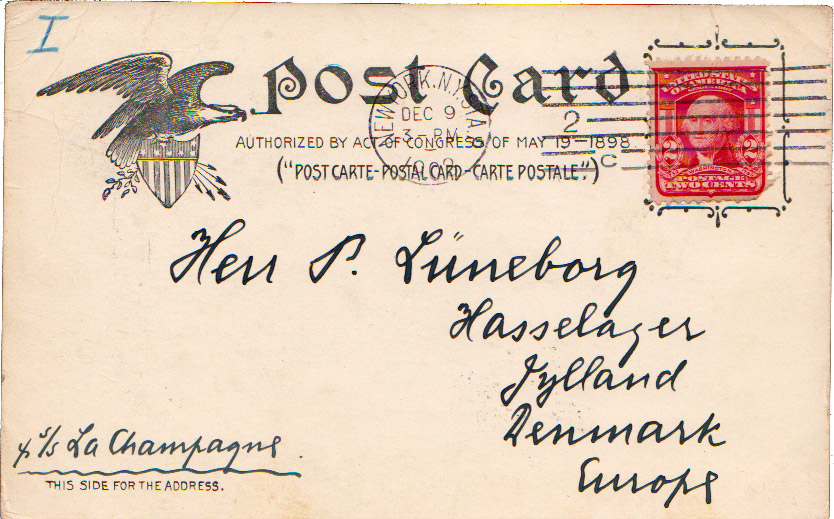 I
Post Card
NEW YORK, N.Y. STA.
DEC 9
3-PM
2
C
AUTHORIZED BY ACT OF CONGRESS OF MAY 19-1898
("POST CARTE-POSTAL CARD-CARTE POSTALE".)
UNITED STATES OF AMERICA
2 2
WASHINGTON
POSTAGE
TWO CENTS
Herr P. Lüneborg
Hasselager
Jylland
Denmark
Europe
s/s La Champagne
THIS SIDE FOR THE ADDRESS.